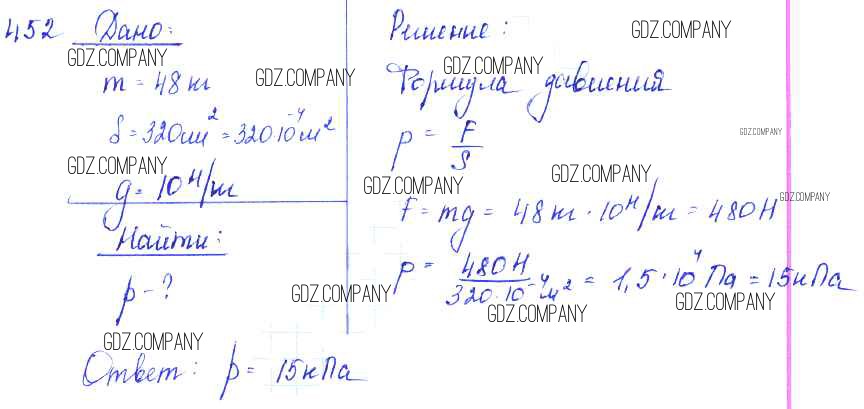 452 Дано:
m = 48 кг
S = 320 см² = 320·10⁻⁴ м²
g = 10 Н/кг
Найти:
p - ?
Решение:
Формула давления
p = F/S
F = mg = 48 кг · 10 Н/кг = 480 Н
p = 480 Н / 320·10⁻⁴ м² = 1,5·10⁴ Па = 15 кПа
Ответ: p = 15 кПа
GDZ.COMPANY
GDZ.COMPANY
GDZ.COMPANY
GDZ.COMPANY
GDZ.COMPANY
GDZ.COMPANY
GDZ.COMPANY
GDZ.COMPANY
GDZ.COMPANY
GDZ.COMPANY
GDZ.COMPANY
GDZ.COMPANY
GDZ.COMPANY